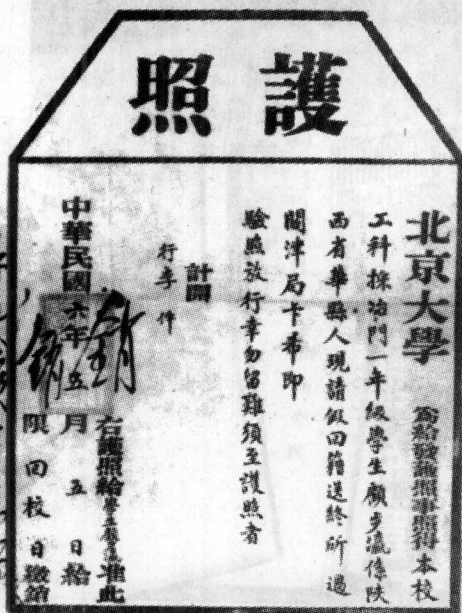 護照
北京大學 為給發護照事照得本校
工科採冶門一年級學生顧步瀛係陝
西省華縣人現請假回籍送終所過
關津局卡希即
驗照放行幸勿留難須至護照者
計開
行李 件
右護照給學生顧步瀛准此
中華民國六年五月五日給
限回校日繳銷